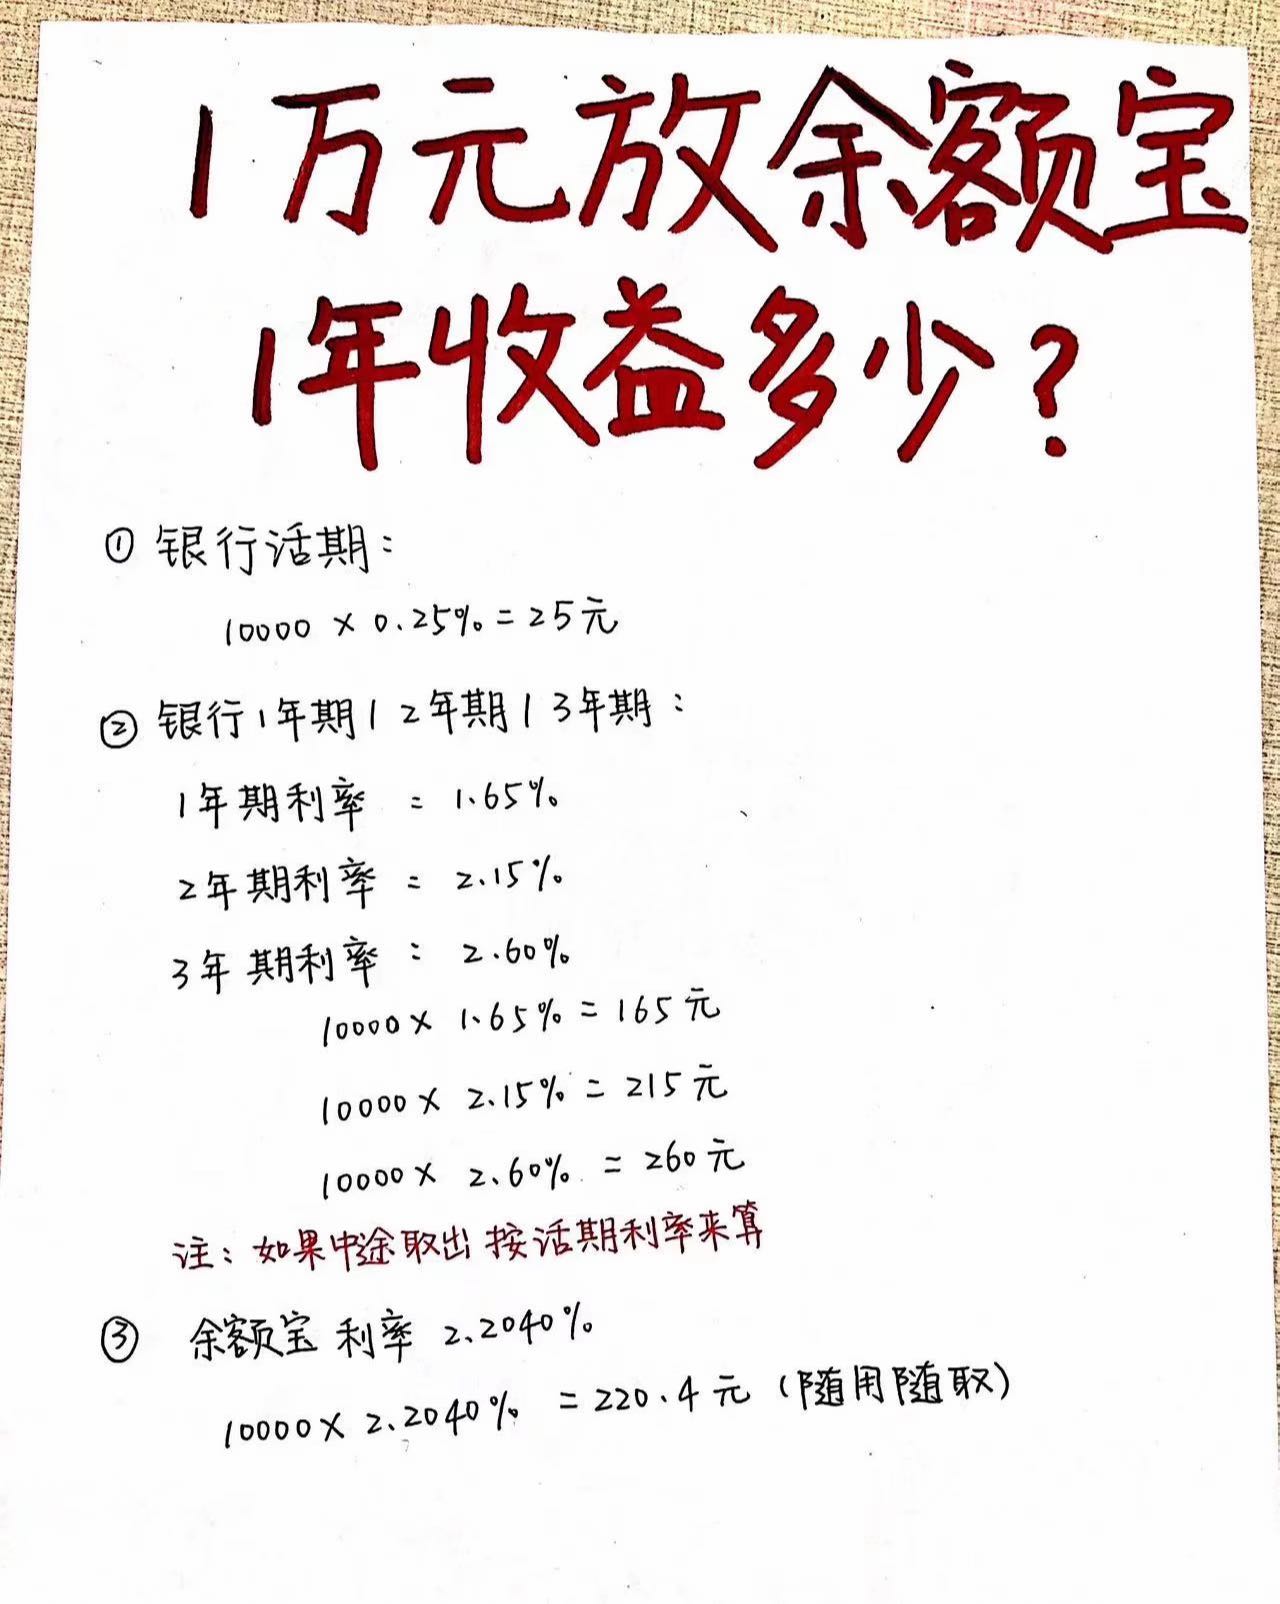 1万元放余额宝
1年收益多少?
① 银行活期:
10000 × 0.25% = 25元
② 银行1年期|2年期|3年期:
1年期利率 = 1.65%
2年期利率 = 2.15%
3年期利率: 2.60%
10000× 1.65% = 165元
10000× 2.15% = 215元
10000× 2.60% = 260元
注: 如果中途取出 按活期利率来算
③ 余额宝 利率 2.2040%
10000× 2.2040% = 220.4元 (随用随取)